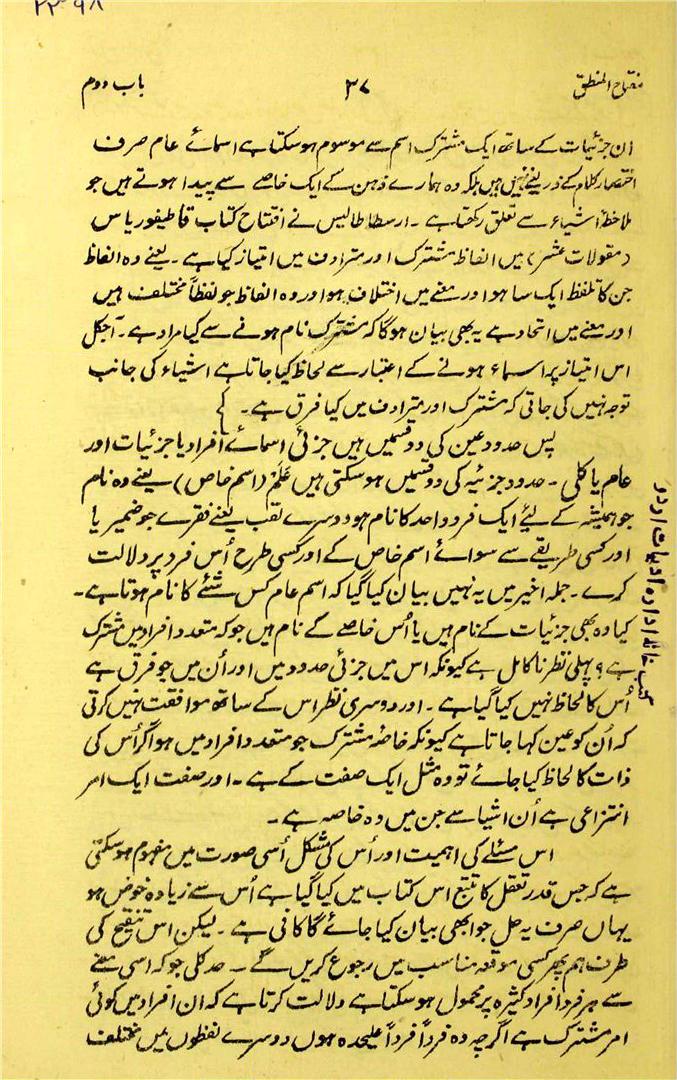 ۲۲۰۹۸
مفتاح المنطق ۳۷ باب دوم
ان جزئیات کے ساتھ ایک مشترک اسم سے موسوم ہو سکتا ہے اسمائے عام صرف
اختصار کلام کے ذریعے نہیں ہیں بلکہ وہ ہمارے ذہن کے ایک خاصے سے پیدا ہوتے ہیں جو
ملاحظۂ اشیاء سے تعلق رکھتا ہے ۔ ارسطاطالیس نے افتتاح کتاب قاطیغوریاس
(مقولات عشر) میں الفاظ مشترک اور مترادف میں امتیاز کیا ہے ۔ یعنے وہ الفاظ
جن کا تلفظ ایک سا ہو اور معنے میں اختلاف ہو اور وہ الفاظ جو لفظاً مختلف ہیں
اور معنے میں اتحاد ہے یہ بھی بیان ہوگا کہ مشترک نام ہونے سے کیا مراد ہے ۔ آجکل
اس امتیاز پر اسماء ہونے کے اعتبار سے لحاظ کیا جاتا ہے اشیاء کی جانب
توجہ نہیں کی جاتی کہ مشترک اور مترادف میں کیا فرق ہے ۔
پس حدود عین کی دو قسمیں ہیں جزئی اسمائے افراد یا جزئیات اور
عام یا کلی ۔ حدود جزئیہ کی دو قسمیں ہو سکتی ہیں عَلَم (اسم خاص) یعنے وہ نام
جو ہمیشہ کے لیٔے ایک فرد واحد کا نام ہو دوسرے لقب یعنے فقرے جو ضمیر یا
اور کسی طریقے سے سوائے اسم خاص کے اور کسی طرح اُس فرد پر دلالت
کرے ۔ جملہ اخیر میں یہ نہیں بیان کیا گیا کہ اسم عام کس شئے کا نام ہوتا ہے ۔
کیا وہ بھی جزئیات کے نام ہیں یا اُس خاصے کے نام ہیں جو کہ متعدد افراد میں مشترک
ہے ؟ پہلی نظر ناکامل ہے کیونکہ اس میں جزئی حدود میں اور اُن میں جو فرق ہے
اُس کا لحاظ نہیں کیا گیا ہے ۔ اور دوسری نظر اس کے ساتھ موافقت نہیں کرتی
کہ اُن کو عین کہا جاتا ہے کیونکہ خاصۂ مشترک جو متعدد افراد میں ہو اگر اُس کی
ذات کا لحاظ کیا جائے تو وہ مثل ایک صفت کے ہے ۔ اور صفت ایک امر
انتزاعی ہے اُن اشیا سے جن میں وہ خاصہ ہے ۔
اس مسئلے کی اہمیت اور اُس کی شکل اُسی صورت میں مفہوم ہو سکتی
ہے کہ جس قدر تعقل کا تتبع اس کتاب میں کیا گیا ہے اُس سے زیادہ خوض ہو
یہاں صرف یہ حل جو ابھی بیان کیا جائے گا کافی ہے ۔ لیکن اس تنقیح کی
طرف ہم پھر کسی موقعہ مناسب میں رجوع کریں گے ۔ حد کلی جو کہ اسی معنے
سے ہر فرد افراد کثیرہ پر محمول ہو سکتا ہے دلالت کرتا ہے کہ ان افراد میں کوئی
امر مشترک ہے اگرچہ وہ فرداً فرداً علیحدہ ہوں دوسرے لفظوں میں مختلف
کتب خانہ ادارہ ادبیات اردو